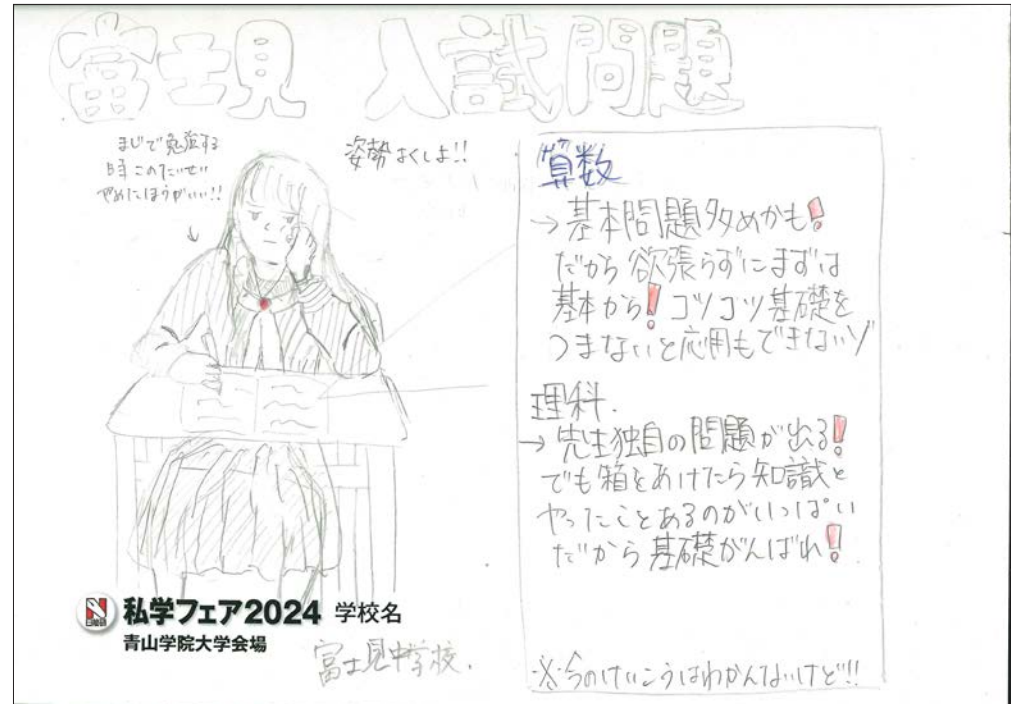 富士見 入試問題
まじで勉強する
時このたいせい
やめたほうがいい!!
姿勢よくしよ!!
算数
→基本問題多めかも!
だから欲張らずにまずは
基本から!コツコツ基礎を
つまないと応用もできないゾ
理科.
→先生独自の問題が出る!
でも箱をあけたら知識と
やったことあるのがいっぱい
だから基礎がんばれ!
※今のけいこうはわかんないけど!!
N
日能研
私学フェア2024 学校名
青山学院大学会場
富士見中学校.